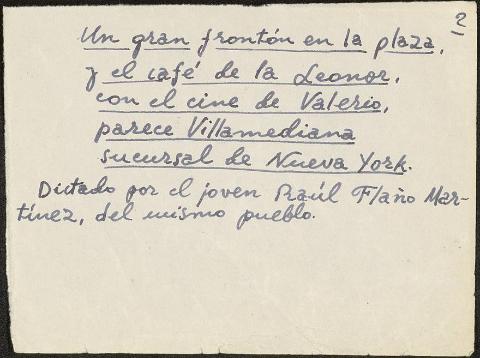 2
Un gran frontón en la plaza,
y el café de la Leonor,
con el cine de Valerio,
parece Villamediana
sucursal de Nueva York.
Dictado por el joven Raúl Flaño Mar-
tínez, del mismo pueblo.